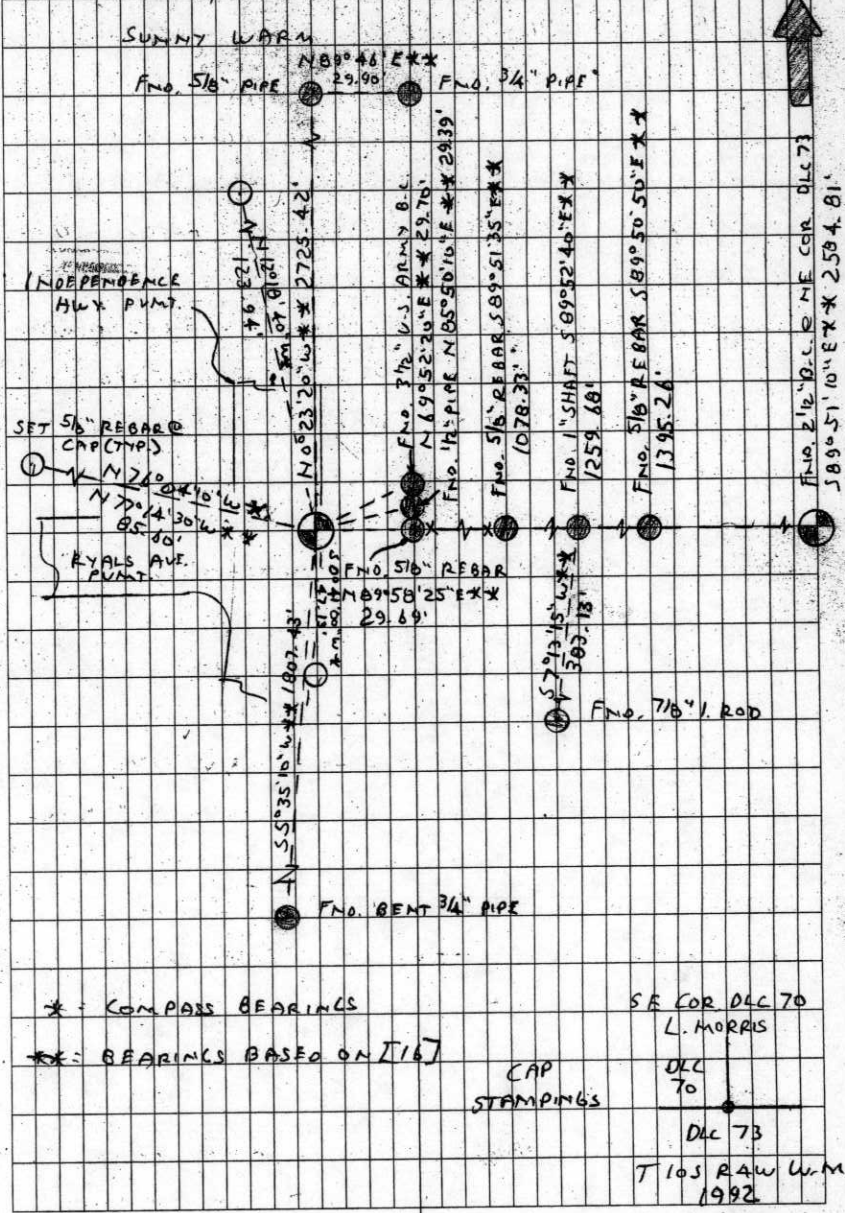 SUNNY WARM
N89°46'E**
29.90'
FND. 5/8" PIPE
FND. 3/4" PIPE
N0°23'20"W ** 2725.42'
N12°18'40"W*
123.94'
INDEPENDENCE
HWY. PVMT.
FND 3 1/2" U.S. ARMY B.C.
N69°52'20"E ** 29.70'
FND. 1/2" PIPE N85°50'10"E ** 29.39'
FND. 5/8" REBAR S89°51'35"E**
1078.33'
FND 1" SHAFT S89°52'40"E**
1259.68'
FND. 5/8" REBAR S89°50'50"E**
1395.26'
FND. 2 1/2" B.C. @ NE COR DLC 73
S89°51'10"E** 2584.81'
SET 5/8" REBAR @
CAP (TYP.)
N76°04'10"W*
N77°14'30"W**
85.60'
RYALS AVE.
PVMT.
FND. 5/8" REBAR
N89°58'25"E**
29.69'
47.19'
S5°35'10"W** 1807.43'
S7°13'15"W**
383.13'
FND. 7/8" I. ROD
FND. BENT 3/4" PIPE
* = COMPASS BEARINGS
** = BEARINGS BASED ON [16]
CAP
STAMPINGS
SE COR DLC 70
L. MORRIS
DLC
70
DLC 73
T10S R4W W.M
1992